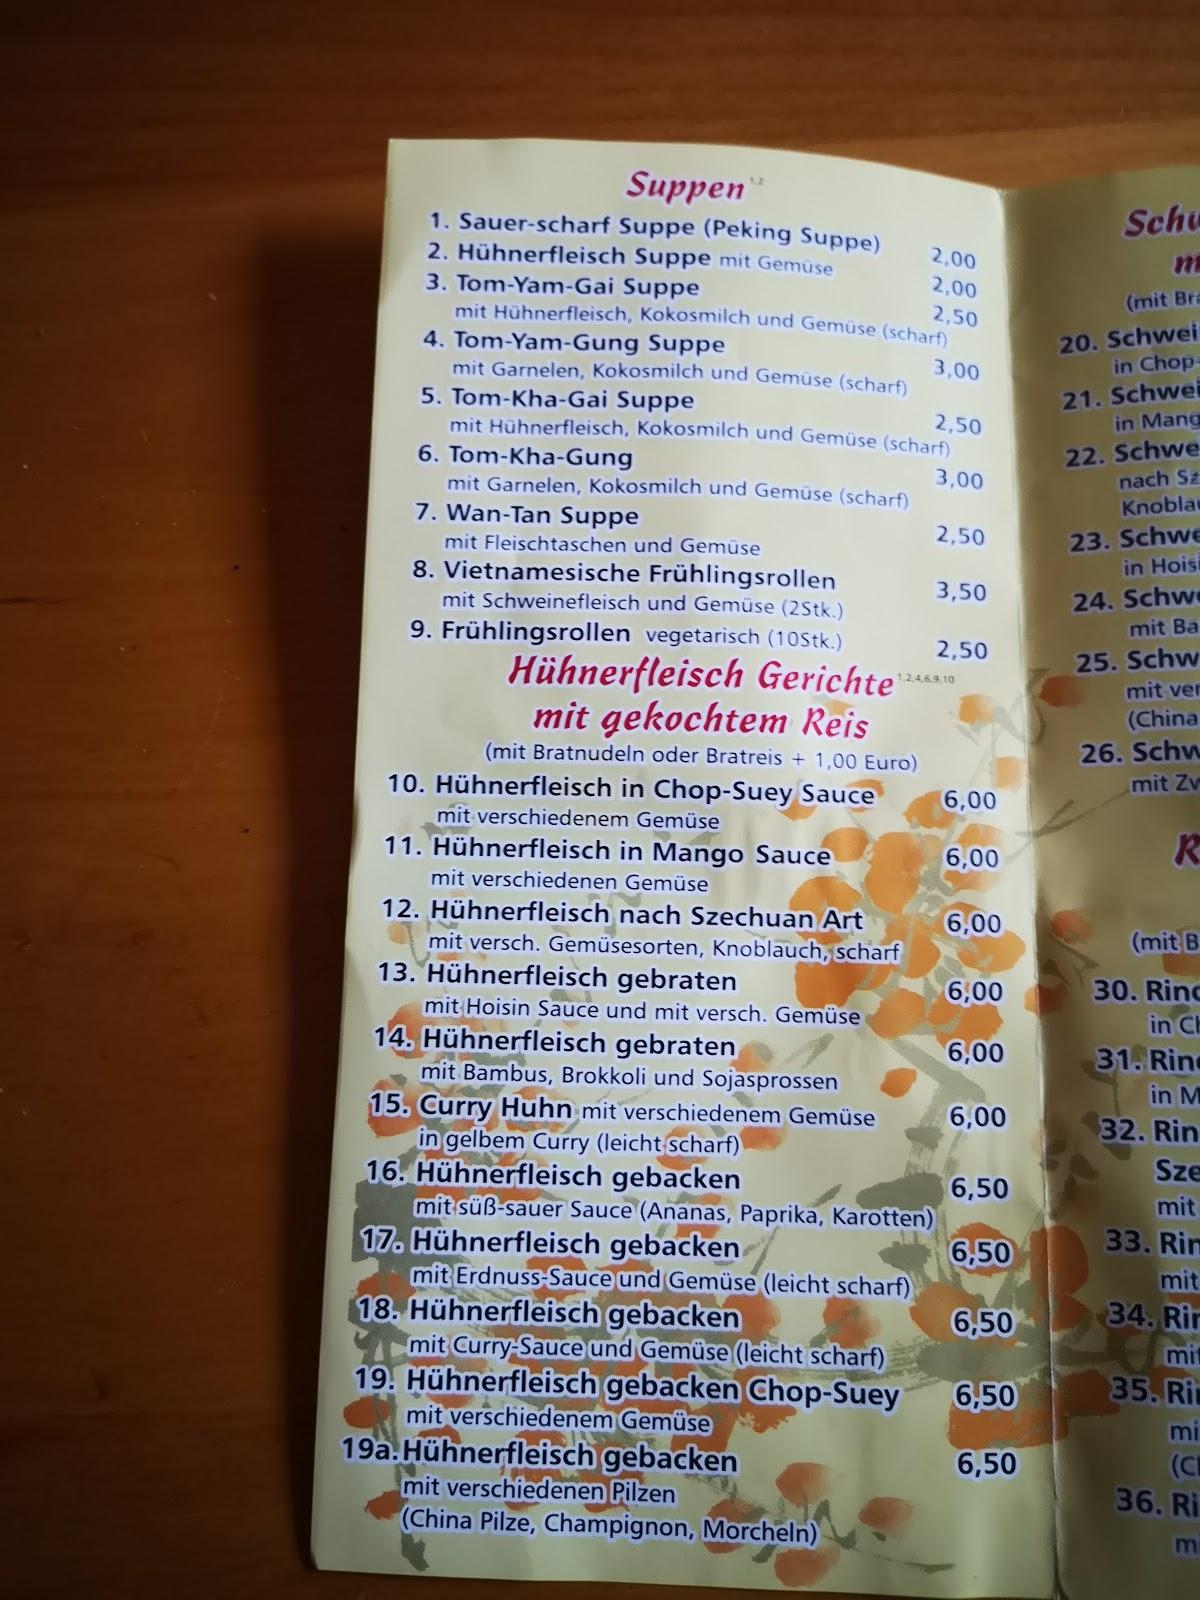 Suppen 1,2
1. Sauer-scharf Suppe (Peking Suppe) 2,00
2. Hühnerfleisch Suppe mit Gemüse 2,00
3. Tom-Yam-Gai Suppe 2,50
mit Hühnerfleisch, Kokosmilch und Gemüse (scharf)
4. Tom-Yam-Gung Suppe 3,00
mit Garnelen, Kokosmilch und Gemüse (scharf)
5. Tom-Kha-Gai Suppe 2,50
mit Hühnerfleisch, Kokosmilch und Gemüse (scharf)
6. Tom-Kha-Gung 3,00
mit Garnelen, Kokosmilch und Gemüse (scharf)
7. Wan-Tan Suppe 2,50
mit Fleischtaschen und Gemüse
8. Vietnamesische Frühlingsrollen 3,50
mit Schweinefleisch und Gemüse (2Stk.)
9. Frühlingsrollen vegetarisch (10Stk.) 2,50
Hühnerfleisch Gerichte 1,2,4,6,9,10
mit gekochtem Reis
(mit Bratnudeln oder Bratreis + 1,00 Euro)
10. Hühnerfleisch in Chop-Suey Sauce 6,00
mit verschiedenem Gemüse
11. Hühnerfleisch in Mango Sauce 6,00
mit verschiedenen Gemüse
12. Hühnerfleisch nach Szechuan Art 6,00
mit versch. Gemüsesorten, Knoblauch, scharf
13. Hühnerfleisch gebraten 6,00
mit Hoisin Sauce und mit versch. Gemüse
14. Hühnerfleisch gebraten 6,00
mit Bambus, Brokkoli und Sojasprossen
15. Curry Huhn mit verschiedenem Gemüse 6,00
in gelbem Curry (leicht scharf)
16. Hühnerfleisch gebacken 6,50
mit süß-sauer Sauce (Ananas, Paprika, Karotten)
17. Hühnerfleisch gebacken 6,50
mit Erdnuss-Sauce und Gemüse (leicht scharf)
18. Hühnerfleisch gebacken 6,50
mit Curry-Sauce und Gemüse (leicht scharf)
19. Hühnerfleisch gebacken Chop-Suey 6,50
mit verschiedenem Gemüse
19a. Hühnerfleisch gebacken 6,50
mit verschiedenen Pilzen
(China Pilze, Champignon, Morcheln)
20.
in Chop-
21.
in Mang
22.
nach Sz
Knobla
23.
in Hoisi
24.
mit Ba
25.
mit ver
(China
26.
mit Zw
(mit B
30.
31.
32.
mit
33.
mit
34.
35.
36.